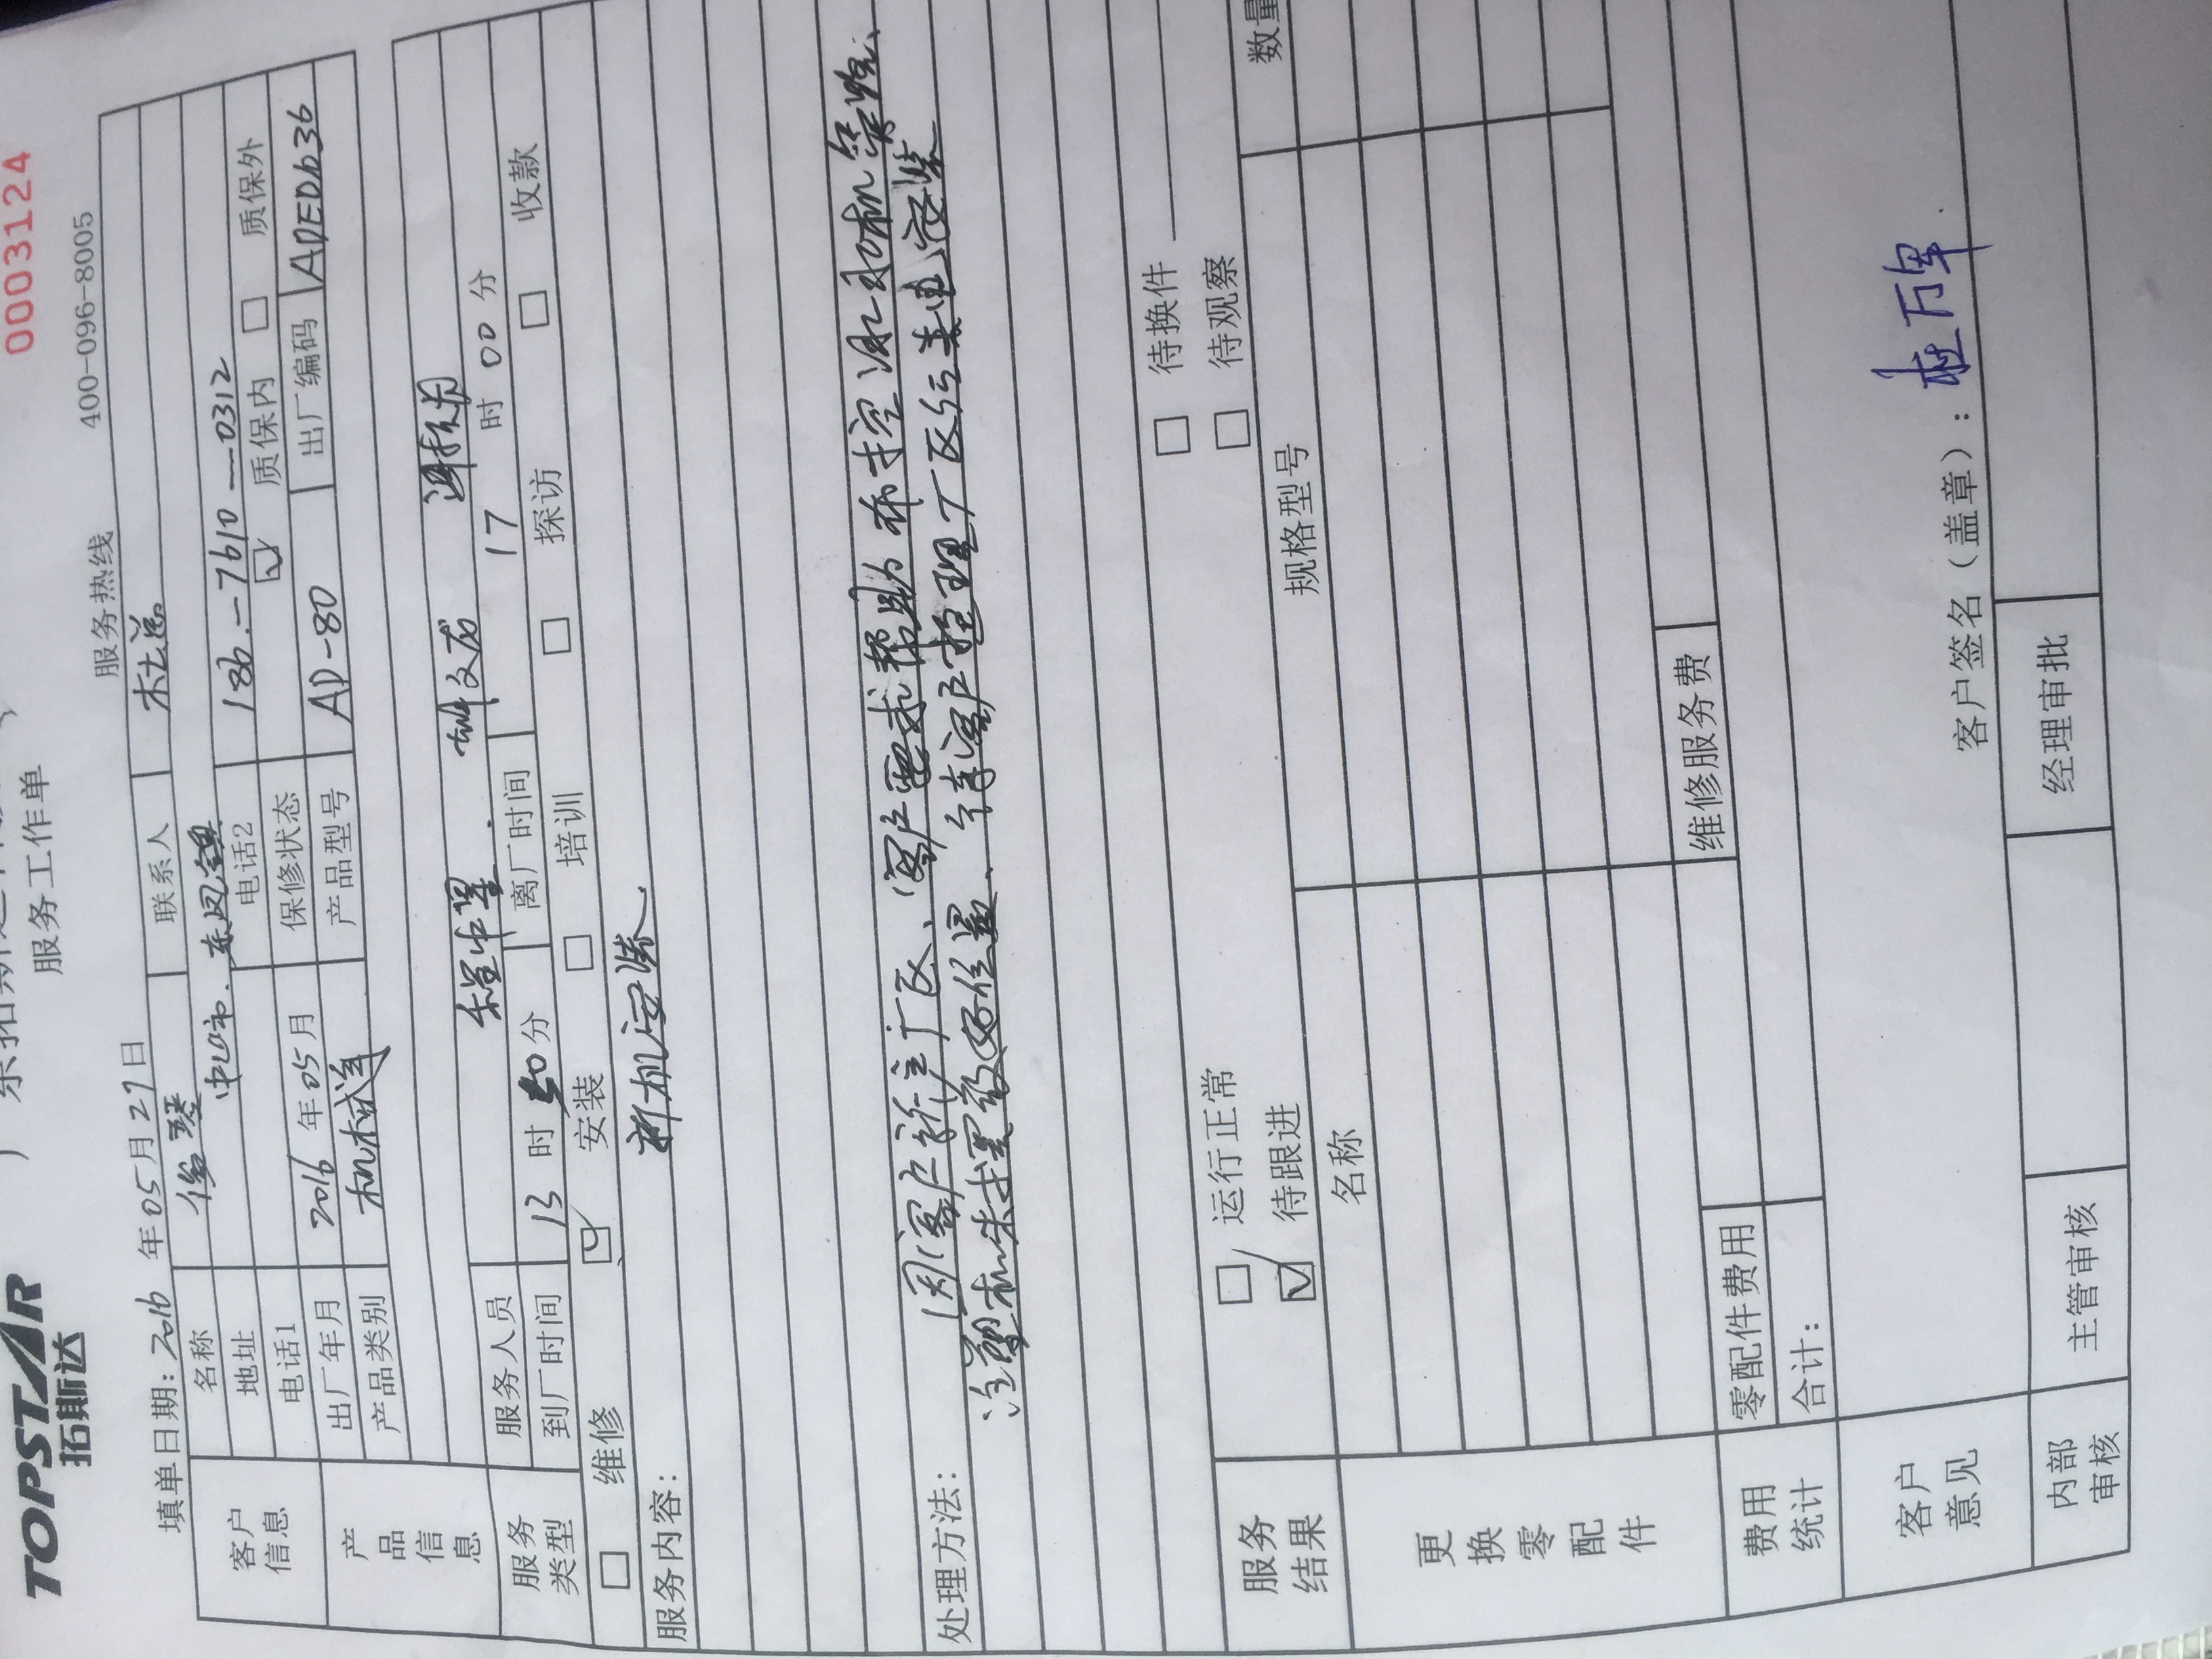 TOPSTAR
拓斯达
0003124
服务工作单
服务热线 400-096-8005
填单日期: 2016 年 05 月 27 日
客户信息
名称 俊琴 联系人 杜总
地址 中山市.东凤镇
电话1 电话2 186-7610-0312
产品信息
出厂年月 2016 年 05 月 保修状态 ☑ 质保内 □ 质保外
产品类别 机械手 产品型号 AD-80 出厂编码 APED636
服务类型
服务人员 程中星. 文龙
到厂时间 13 时 50 分 离厂时间 17 时 00 分
□ 维修 ☑ 安装 □ 培训 □ 探访 □ 收款
服务内容: 新机安装.
处理方法: 因客户新产厂区、客户要求帮助布控测功机等
注塑机未摆放好位置、待客户整理厂区后来电安装
服务结果
□ 运行正常 □ 待换件
☑ 待跟进 □ 待观察
更换零配件
名称 规格型号 数量
费用统计
零配件费用 维修服务费
合计:
客户意见
客户签名（盖章）: 杜万军
内部审核 主管审核 经理审批